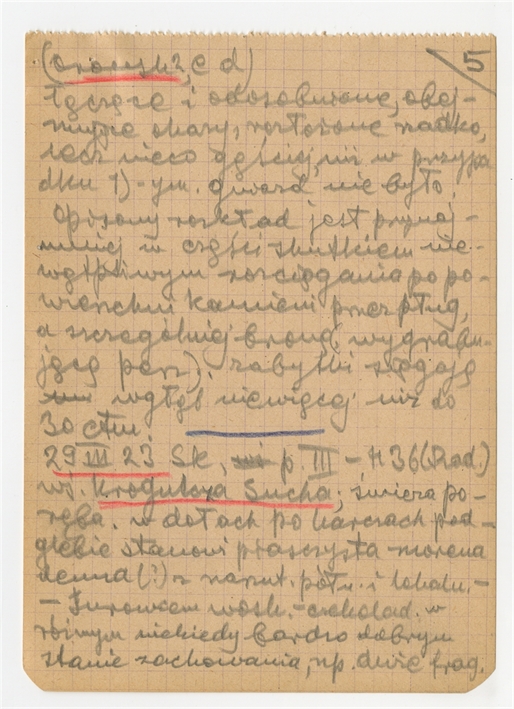 5
(c d)
i odosobnione, obej-
mujące obszary, rozłożone rzadko,
lecz nieco gęściej, niż w przypa
dku 1)-ym. gniazd nie było.
Opisany rozkład jest przynaj-
mniej w części skutkiem nie-
wątpliwym rozciągania po po-
wierzchni kamieni przez pług,
a szczególniej bronę (wygrabu-
jącą perz); zabytki sięgają
wgłąb niewięcej niż do
30 ctm.
29 III 23 Sk, p. III – H 36 (Rad.)
wś. Krogulcza Sucha; świeża po-
ręba. w dołach po karczach pod-
glebie stanowi piaszczysta morena
denud (!) z narzut. półn. i lokaln. -
- Surowcem wosk.-czekolad. w
różnym niekiedy bardzo dobrym
stanie zachowania, np. dwie frag.